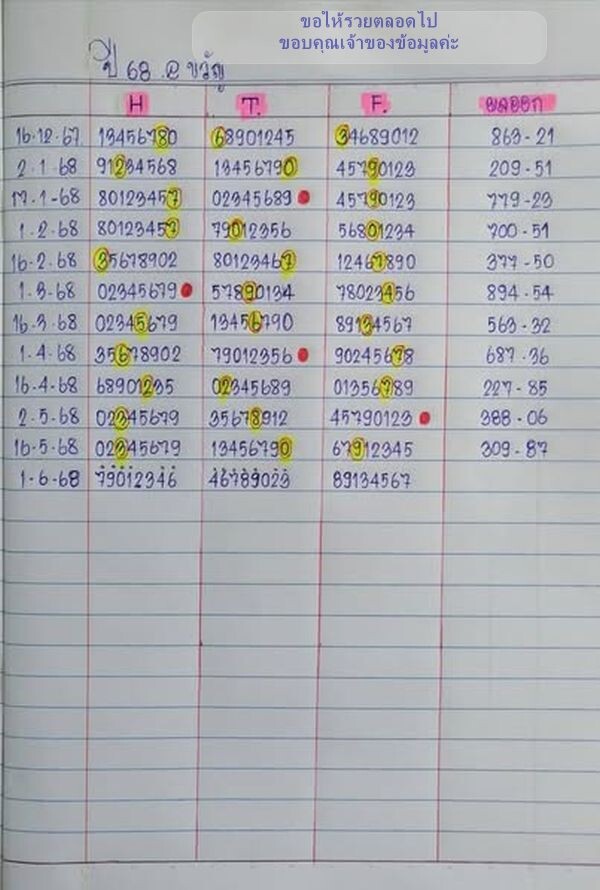 ขอให้รวยตลอดไป
ขอบคุณเจ้าของข้อมูลค่ะ
ปี 68 อ ขวัญ
H T. F. ผลออก
16-12-67 13456780 68901245 34689012 863-21
2-1-68 91234568 13456790 45790123 209-51
17-1-68 80123457 02345689 45790123 779-23
1-2-68 80123457 79012356 56801234 700-51
16-2-68 35678902 80123467 12467890 377-50
1-3-68 02345679 57890134 78023456 894-54
16-3-68 02345679 13456790 89134567 563-32
1-4-68 35678902 79012356 90245678 687-36
16-4-68 68901235 02345689 01356789 227-85
2-5-68 02345679 35678912 45790123 388-06
16-5-68 02345679 13456790 67912345 309-87
1-6-68 79012346 46789023 89134567